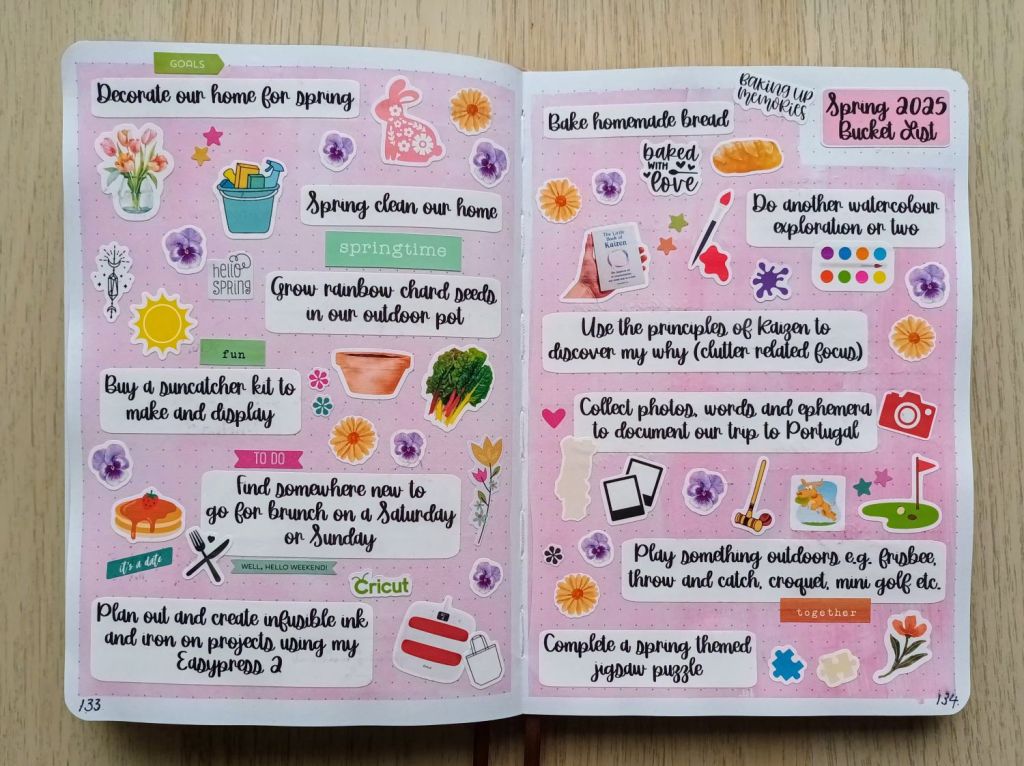 GOALS
Decorate our home for spring
Spring clean our home
springtime
hello
spring
Grow rainbow chard seeds
in our outdoor pot
fun
Buy a suncatcher kit to
make and display
TO DO
Find somewhere new to
go for brunch on a Saturday
or Sunday
it's a date
WELL, HELLO WEEKEND!
Cricut
Plan out and create infusible ink
and iron on projects using my
Easypress 2
133
Baking up
memories
Spring 2025
Bucket List
Bake homemade bread
baked
with
love
Do another watercolour
exploration or two
The Little
Book of
Kaizen
Use the principles of Kaizen to
discover my why (clutter related focus)
Collect photos, words and ephemera
to document our trip to Portugal
Play something outdoors e.g. frisbee,
throw and catch, croquet, mini golf etc.
together
Complete a spring themed
jigsaw puzzle
134